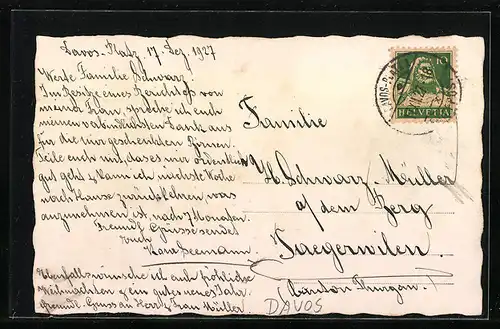 Davos-Platz, 17. Dez. 1927
Werte Familie Schwarz.
Im Besitze eines Berichtes von
meiner Frau, spreche ich euch
meinen verbindlichsten Dank aus
für die mir geschenkten Birnen.
Teile euch mit, dass es mir ordentlich
gut geht & kann ich nächste Woche
nach Hause zurückkehren, was
anzunehmen ist, nach 7 Monaten.
Freundl. Grüsse sendet
euch
Seemann.
Ebenfalls wünsche ich euch fröhliche
Weihnachten & ein gutes neues Jahr.
Freundl. Gruss an Herr & Frau Müller.
10
HELVETIA
Familie
H. Schwarz-Müller
a/dem Berg
Taegerwilen.
(Canton Thurgau)
DAVOS